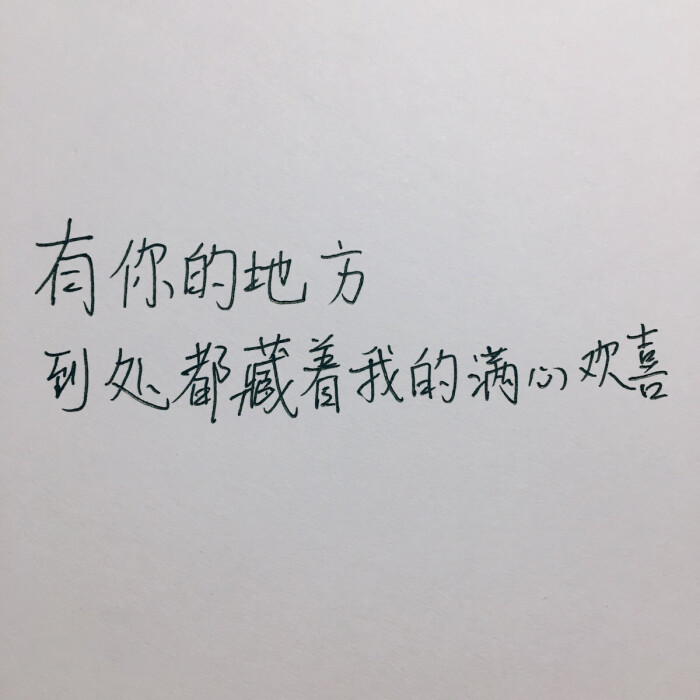 有你的地方
到处都藏着我的满心欢喜